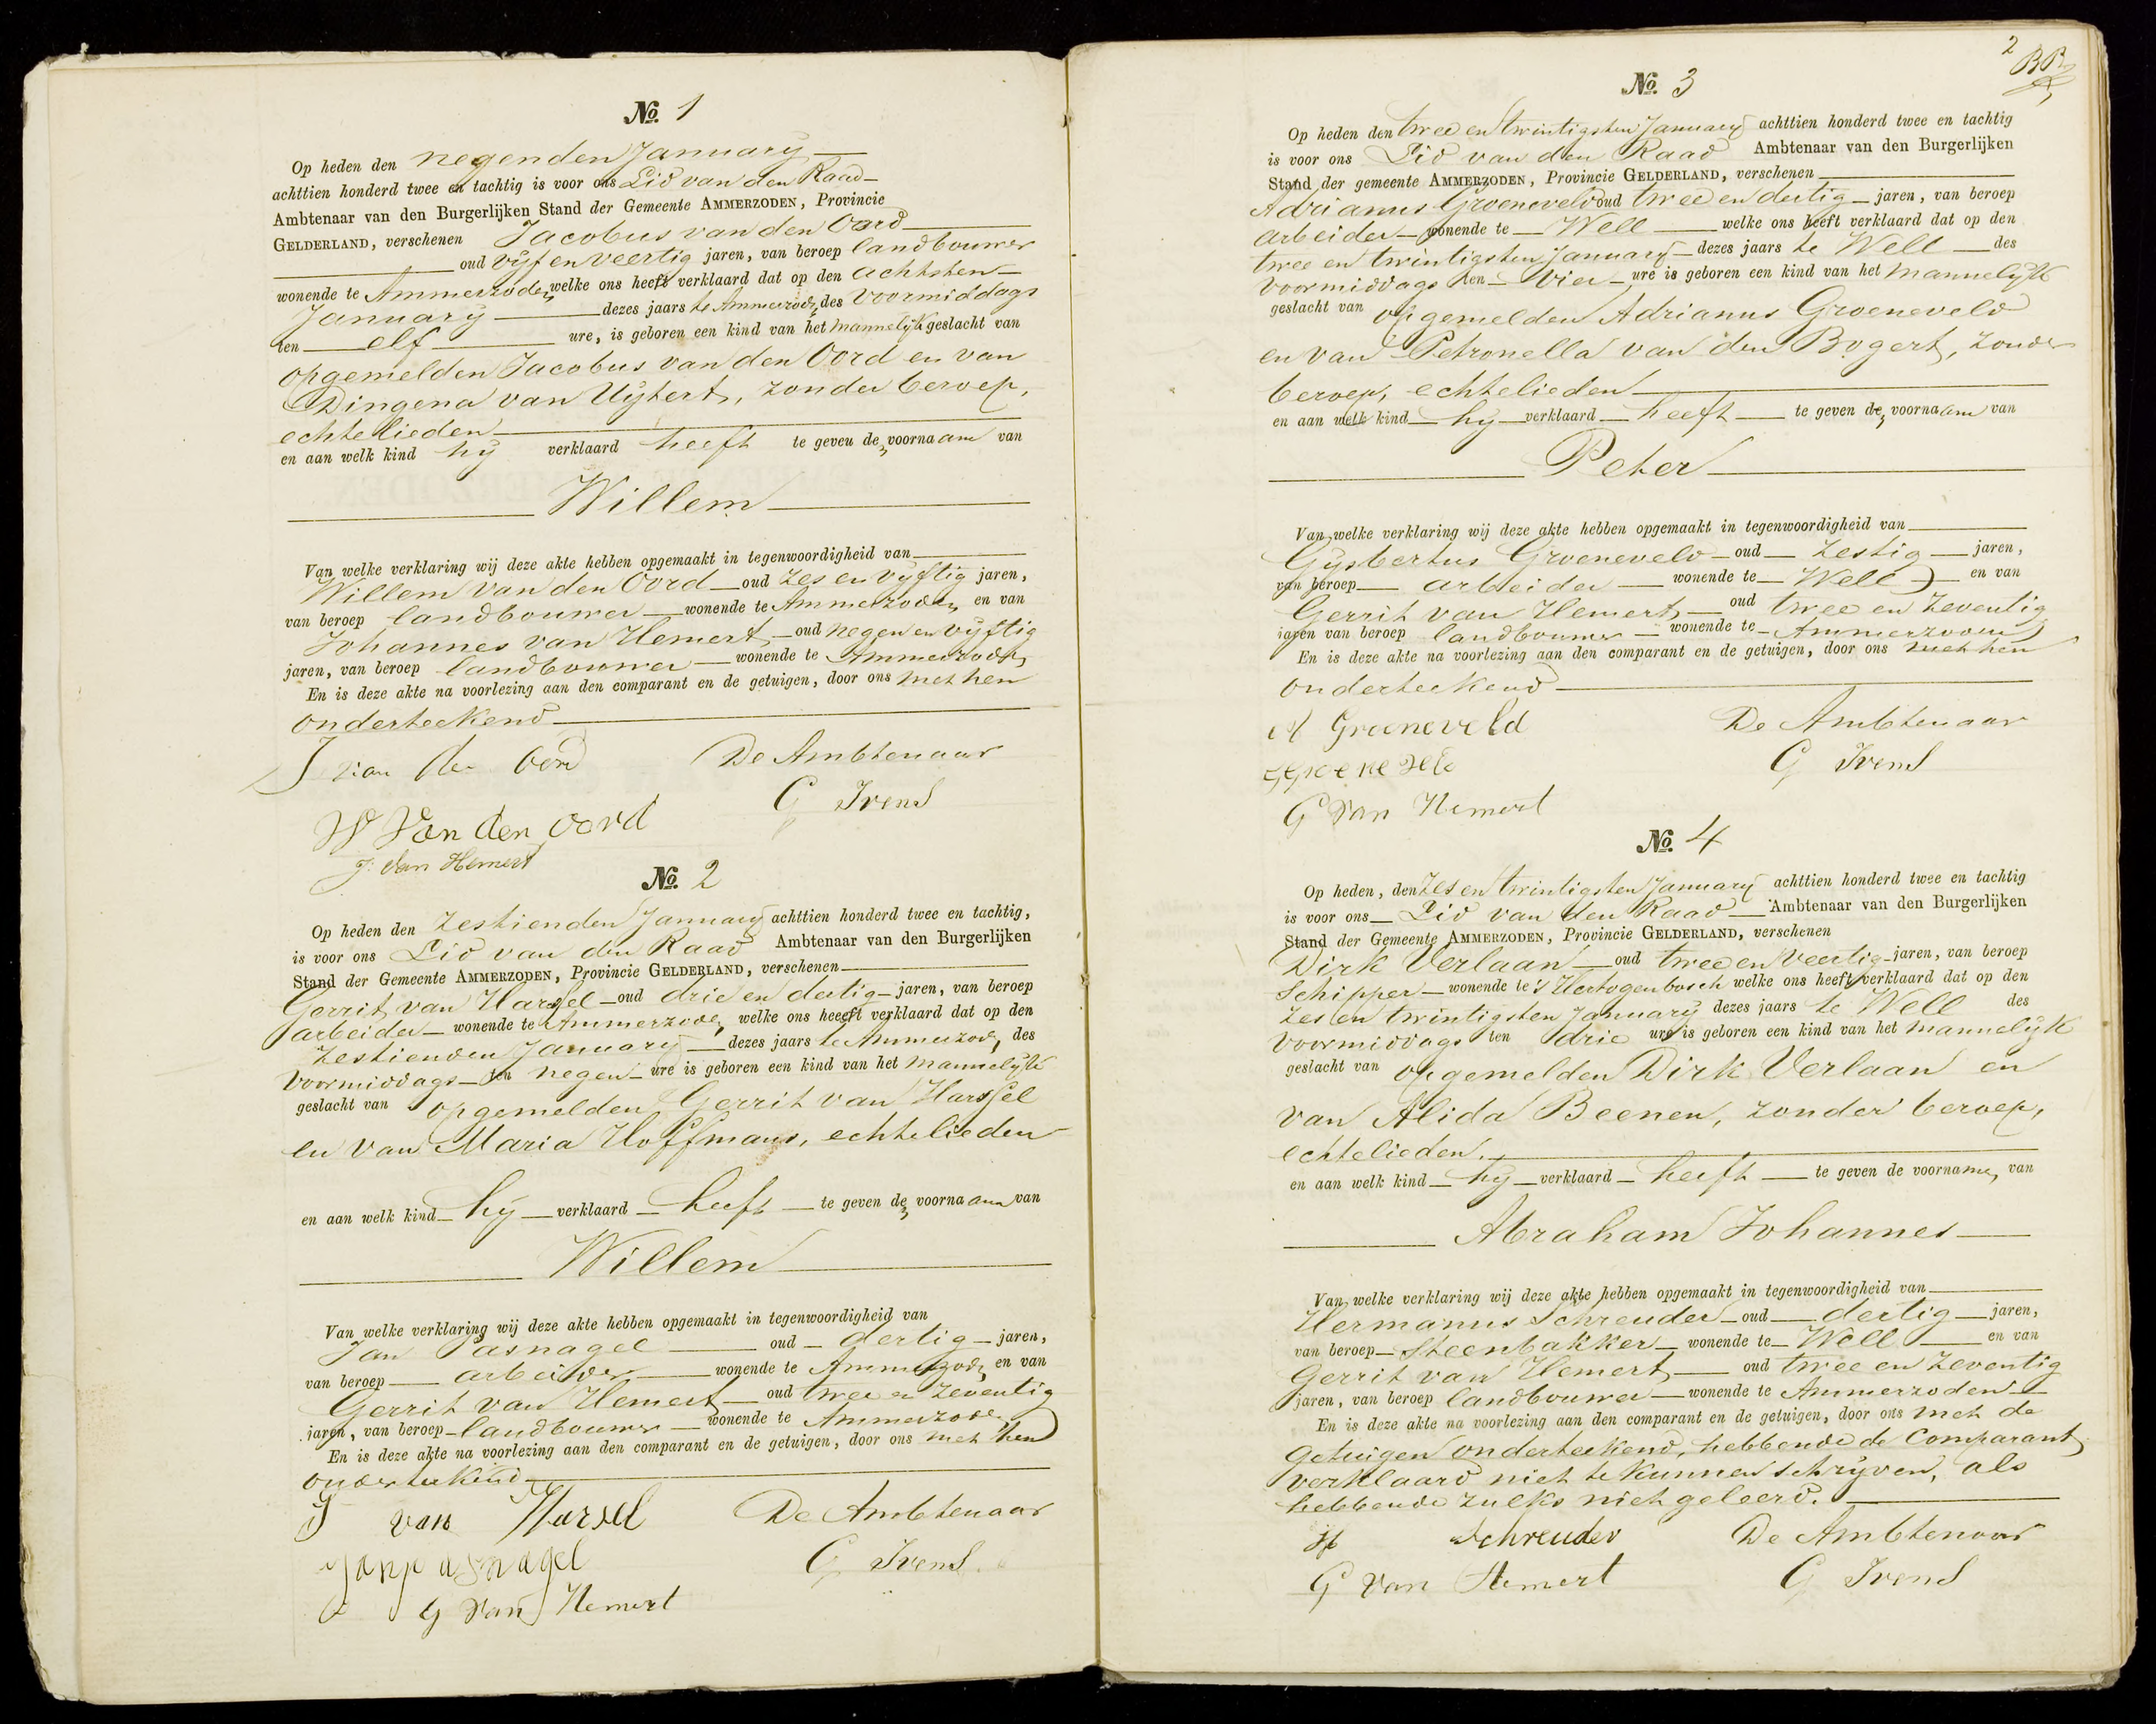 No. 1
Op heden den negenden January
achttien honderd twee en tachtig is voor ons Lid van den Raad
Ambtenaar van den Burgerlijken Stand der Gemeente AMMERZODEN, Provincie
GELDERLAND, verschenen Jacobus van den Oord
oud vijf en veertig jaren, van beroep landbouwer
wonende te Ammerzoden welke ons heeft verklaard dat op den achtsten
January dezes jaars te Ammerzoden des voormiddags
ten elf ure, is geboren een kind van het mannelijk geslacht van
opgemelden Jacobus van den Oord en van
Dingena van Uijtert, zonder beroep,
echtelieden
en aan welk kind hij verklaard heeft te geven de voornaam van
Willem
Van welke verklaring wij deze akte hebben opgemaakt in tegenwoordigheid van
Willem van den Oord oud zes en vijftig jaren,
van beroep landbouwer wonende te Ammerzoden en van
Johannes van Hemert oud negen en vijftig
jaren, van beroep landbouwer wonende te Ammerzoden
En is deze akte na voorlezing aan den comparant en de getuigen, door ons met hen
onderteekend
J van den Oord De Ambtenaar
W Van den oord G Ivens
J. Van Hemert
No. 2
Op heden den zestienden January achttien honderd twee en tachtig,
is voor ons Lid van den Raad Ambtenaar van den Burgerlijken
Stand der Gemeente AMMERZODEN, Provincie GELDERLAND, verschenen
Gerrit van Harssel oud drie en dertig jaren, van beroep
arbeider wonende te Ammerzoden welke ons heeft verklaard dat op den
zestienden January dezes jaars te Ammerzoden des
voormiddags ten negen ure is geboren een kind van het mannelijk
geslacht van opgemelden Gerrit van Harssel
en van Maria Hoffmans, echtelieden
en aan welk kind hij verklaard heeft te geven de voornaam van
Willem
Van welke verklaring wij deze akte hebben opgemaakt in tegenwoordigheid van
Jan Pasnagel oud dertig jaren,
van beroep arbeider wonende te Ammerzoden en van
Gerrit van Hemert oud twee en zeventig
jaren, van beroep landbouwer wonende te Ammerzoden
En is deze akte na voorlezing aan den comparant en de getuigen, door ons met hen
onderteekend
van Harsel De Ambtenaar
Jan pasnagel G Ivens
G Van Hemert
2
No. 3
Op heden den twee en twintigsten January achttien honderd twee en tachtig
is voor ons Lid van den Raad Ambtenaar van den Burgerlijken
Stand der gemeente AMMERZODEN, Provincie GELDERLAND, verschenen
Adrianus Groeneveld oud twee en dertig jaren, van beroep
arbeider wonende te Well welke ons heeft verklaard dat op den
twee en twintigsten January dezes jaars te Well des
voormiddags ten vier ure is geboren een kind van het mannelijk
geslacht van opgemelden Adrianus Groeneveld
en van Petronella van den Bogert, zonder
beroep, echtelieden
en aan welk kind hij verklaard heeft te geven de voornaam van
Peter
Van welke verklaring wij deze akte hebben opgemaakt in tegenwoordigheid van
Gijsbertus Groeneveld oud zestig jaren,
van beroep arbeider wonende te Well en van
Gerrit van Hemert oud twee en zeventig
jaren van beroep landbouwer wonende te Ammerzoden
En is deze akte na voorlezing aan den comparant en de getuigen, door ons met hen
onderteekend
A Groeneveld De Ambtenaar
G Ivens
G Van Hemert
No. 4
Op heden, den zes en twintigsten January achttien honderd twee en tachtig
is voor ons Lid van den Raad Ambtenaar van den Burgerlijken
Stand der Gemeente AMMERZODEN, Provincie GELDERLAND, verschenen
Dirk Verlaan oud twee en veertig jaren, van beroep
Schipper wonende te 's Hertogenbosch welke ons heeft verklaard dat op den
zes en twintigsten January dezes jaars te Well des
voormiddags ten drie ure is geboren een kind van het mannelijk
geslacht van opgemelden Dirk Verlaan en
van Alida Beenen, zonder beroep,
echtelieden.
en aan welk kind hij verklaard heeft te geven de voornamen van
Abraham Johannes
Van welke verklaring wij deze akte hebben opgemaakt in tegenwoordigheid van
Hermanus Schreuder oud dertig jaren,
van beroep Steenbakker wonende te Well en van
Gerrit van Hemert oud twee en zeventig
jaren, van beroep landbouwer wonende te Ammerzoden
En is deze akte na voorlezing aan den comparant en de getuigen, door ons met de
getuigen onderteekend, hebbende de Comparant
verklaard niet te kunnen schrijven, als
hebbende zulks niet geleerd.
Schreuder De Ambtenaar
G Van Hemert G Ivens